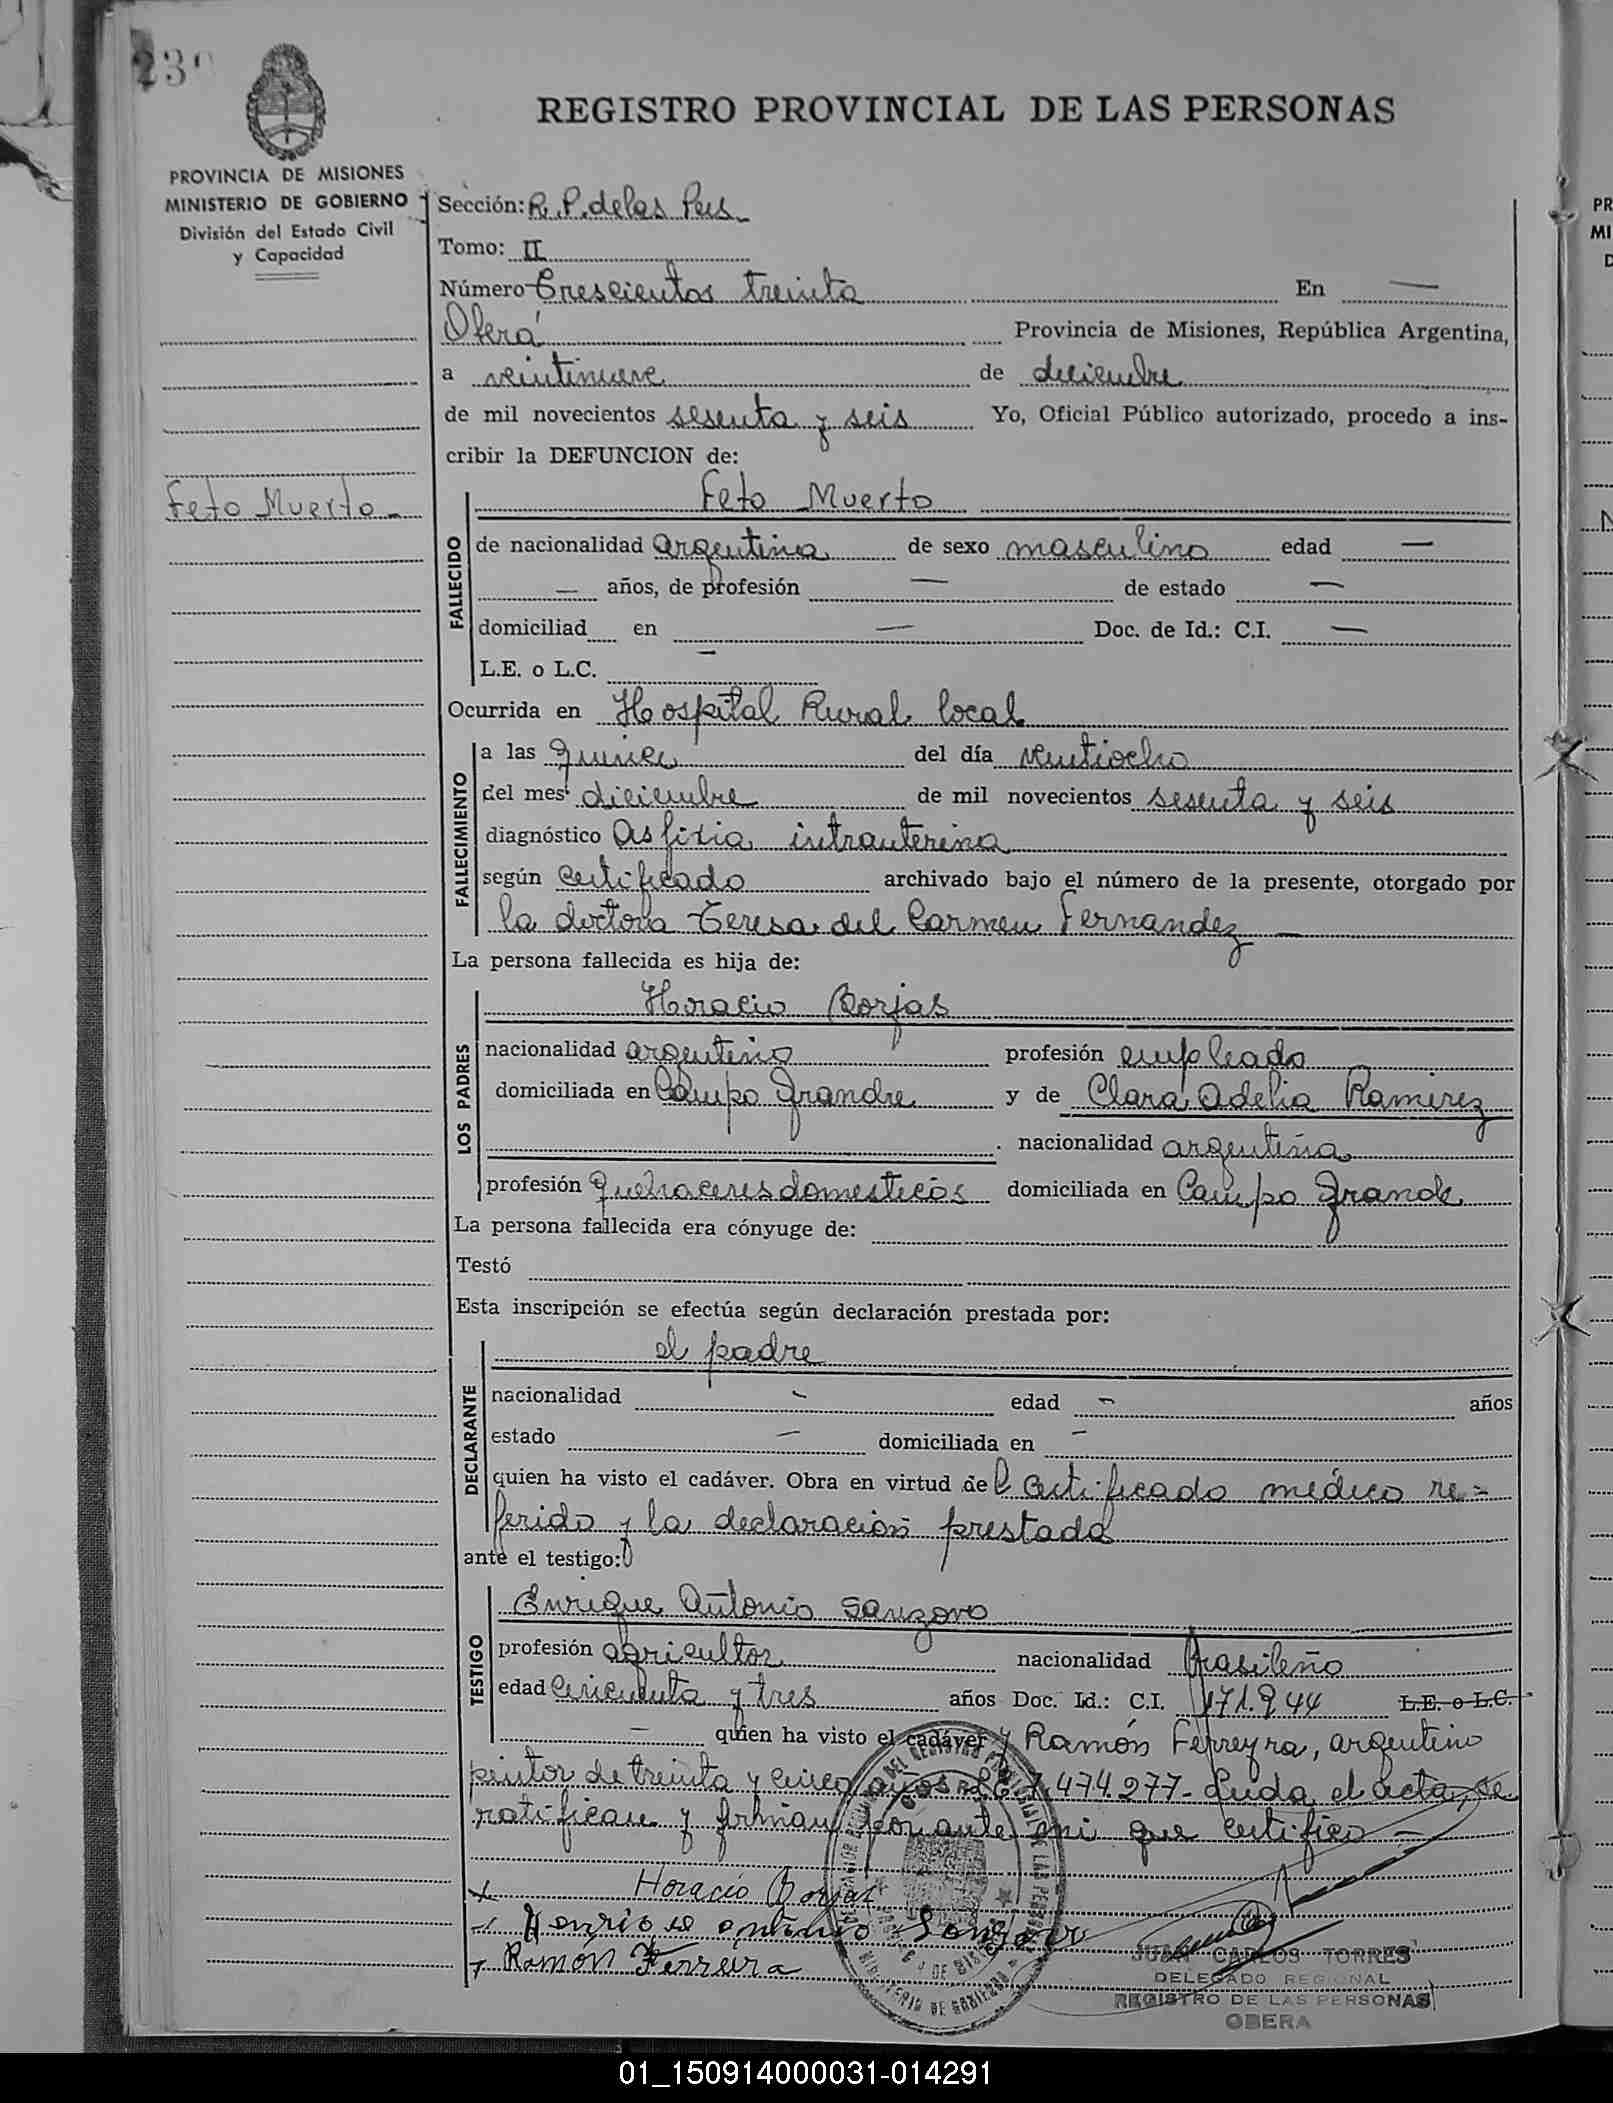 REGISTRO PROVINCIAL DE LAS PERSONAS
PROVINCIA DE MISIONES
MINISTERIO DE GOBIERNO
División del Estado Civil
y Capacidad
Sección: R. P. de las Pers.
Tomo: II
Número Trescientos treinta En —
Oberá Provincia de Misiones, República Argentina,
a veintinueve de diciembre
de mil novecientos sesenta y seis Yo, Oficial Público autorizado, procedo a ins-
cribir la DEFUNCION de:
Feto Muerto
Feto Muerto
FALLECIDO
de nacionalidad argentina de sexo masculino edad —
— años, de profesión — de estado —
domiciliad en — Doc. de Id.: C.I. —
L.E. o L.C. —
Ocurrida en Hospital Rural local
FALLECIMIENTO
a las quince del día veintiocho
del mes diciembre de mil novecientos sesenta y seis
diagnóstico Asfixia intrauterina
según certificado archivado bajo el número de la presente, otorgado por
la doctora Teresa del Carmen Fernandez —
La persona fallecida es hija de:
LOS PADRES
Horacio Borjas
nacionalidad argentino profesión empleado
domiciliada en Campo Grande y de Clara Adelia Ramirez
nacionalidad argentina
profesión Quehaceres domesticos domiciliada en Campo Grande
La persona fallecida era cónyuge de:
Testó
Esta inscripción se efectúa según declaración prestada por:
DECLARANTE
el padre
nacionalidad — edad — años
estado — domiciliada en —
quien ha visto el cadáver. Obra en virtud de l certificado médico re=
ferido y la declaración prestada
ante el testigo:
TESTIGO
Enrique Antonio Sanzovo
profesión agricultor nacionalidad brasileño
edad cincuenta y tres años Doc. Id.: C.I. 171.944 L.E. o L.C.
— quien ha visto el cadáver y Ramón Ferreyra, argentino
pintor de treinta y cinco años L.E. 7.474.277 - Leida el acta, se
ratifican y firman por ante mi que certifico —
Horacio Borjas
Ramón Ferreira
JUAN CARLOS TORRES
DELEGADO REGIONAL
REGISTRO DE LAS PERSONAS
OBERA
01_150914000031-014291